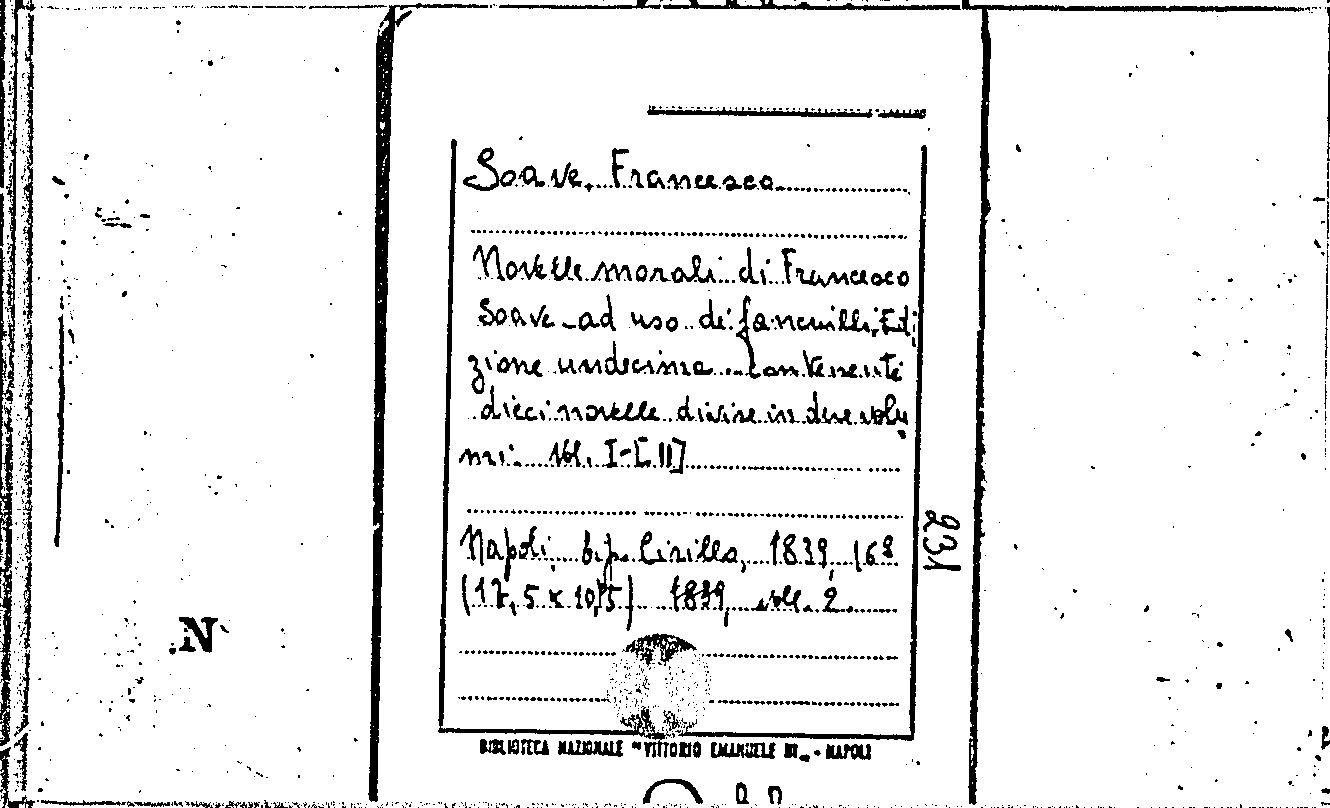 Soave, Francesco
Novelle morali di Francesco
Soave ad uso de' fanciulli, Edi
zione undecima contenente
dieci novelle divise in due volu
mi. Vol. I-[II]
Napoli, tip. Cirillo, 1839, 16º
(17,5 x 10,5) 1839, voll. 2.
231
N
BIBLIOTECA NAZIONALE "VITTORIO EMANUELE III„ - NAPOLI